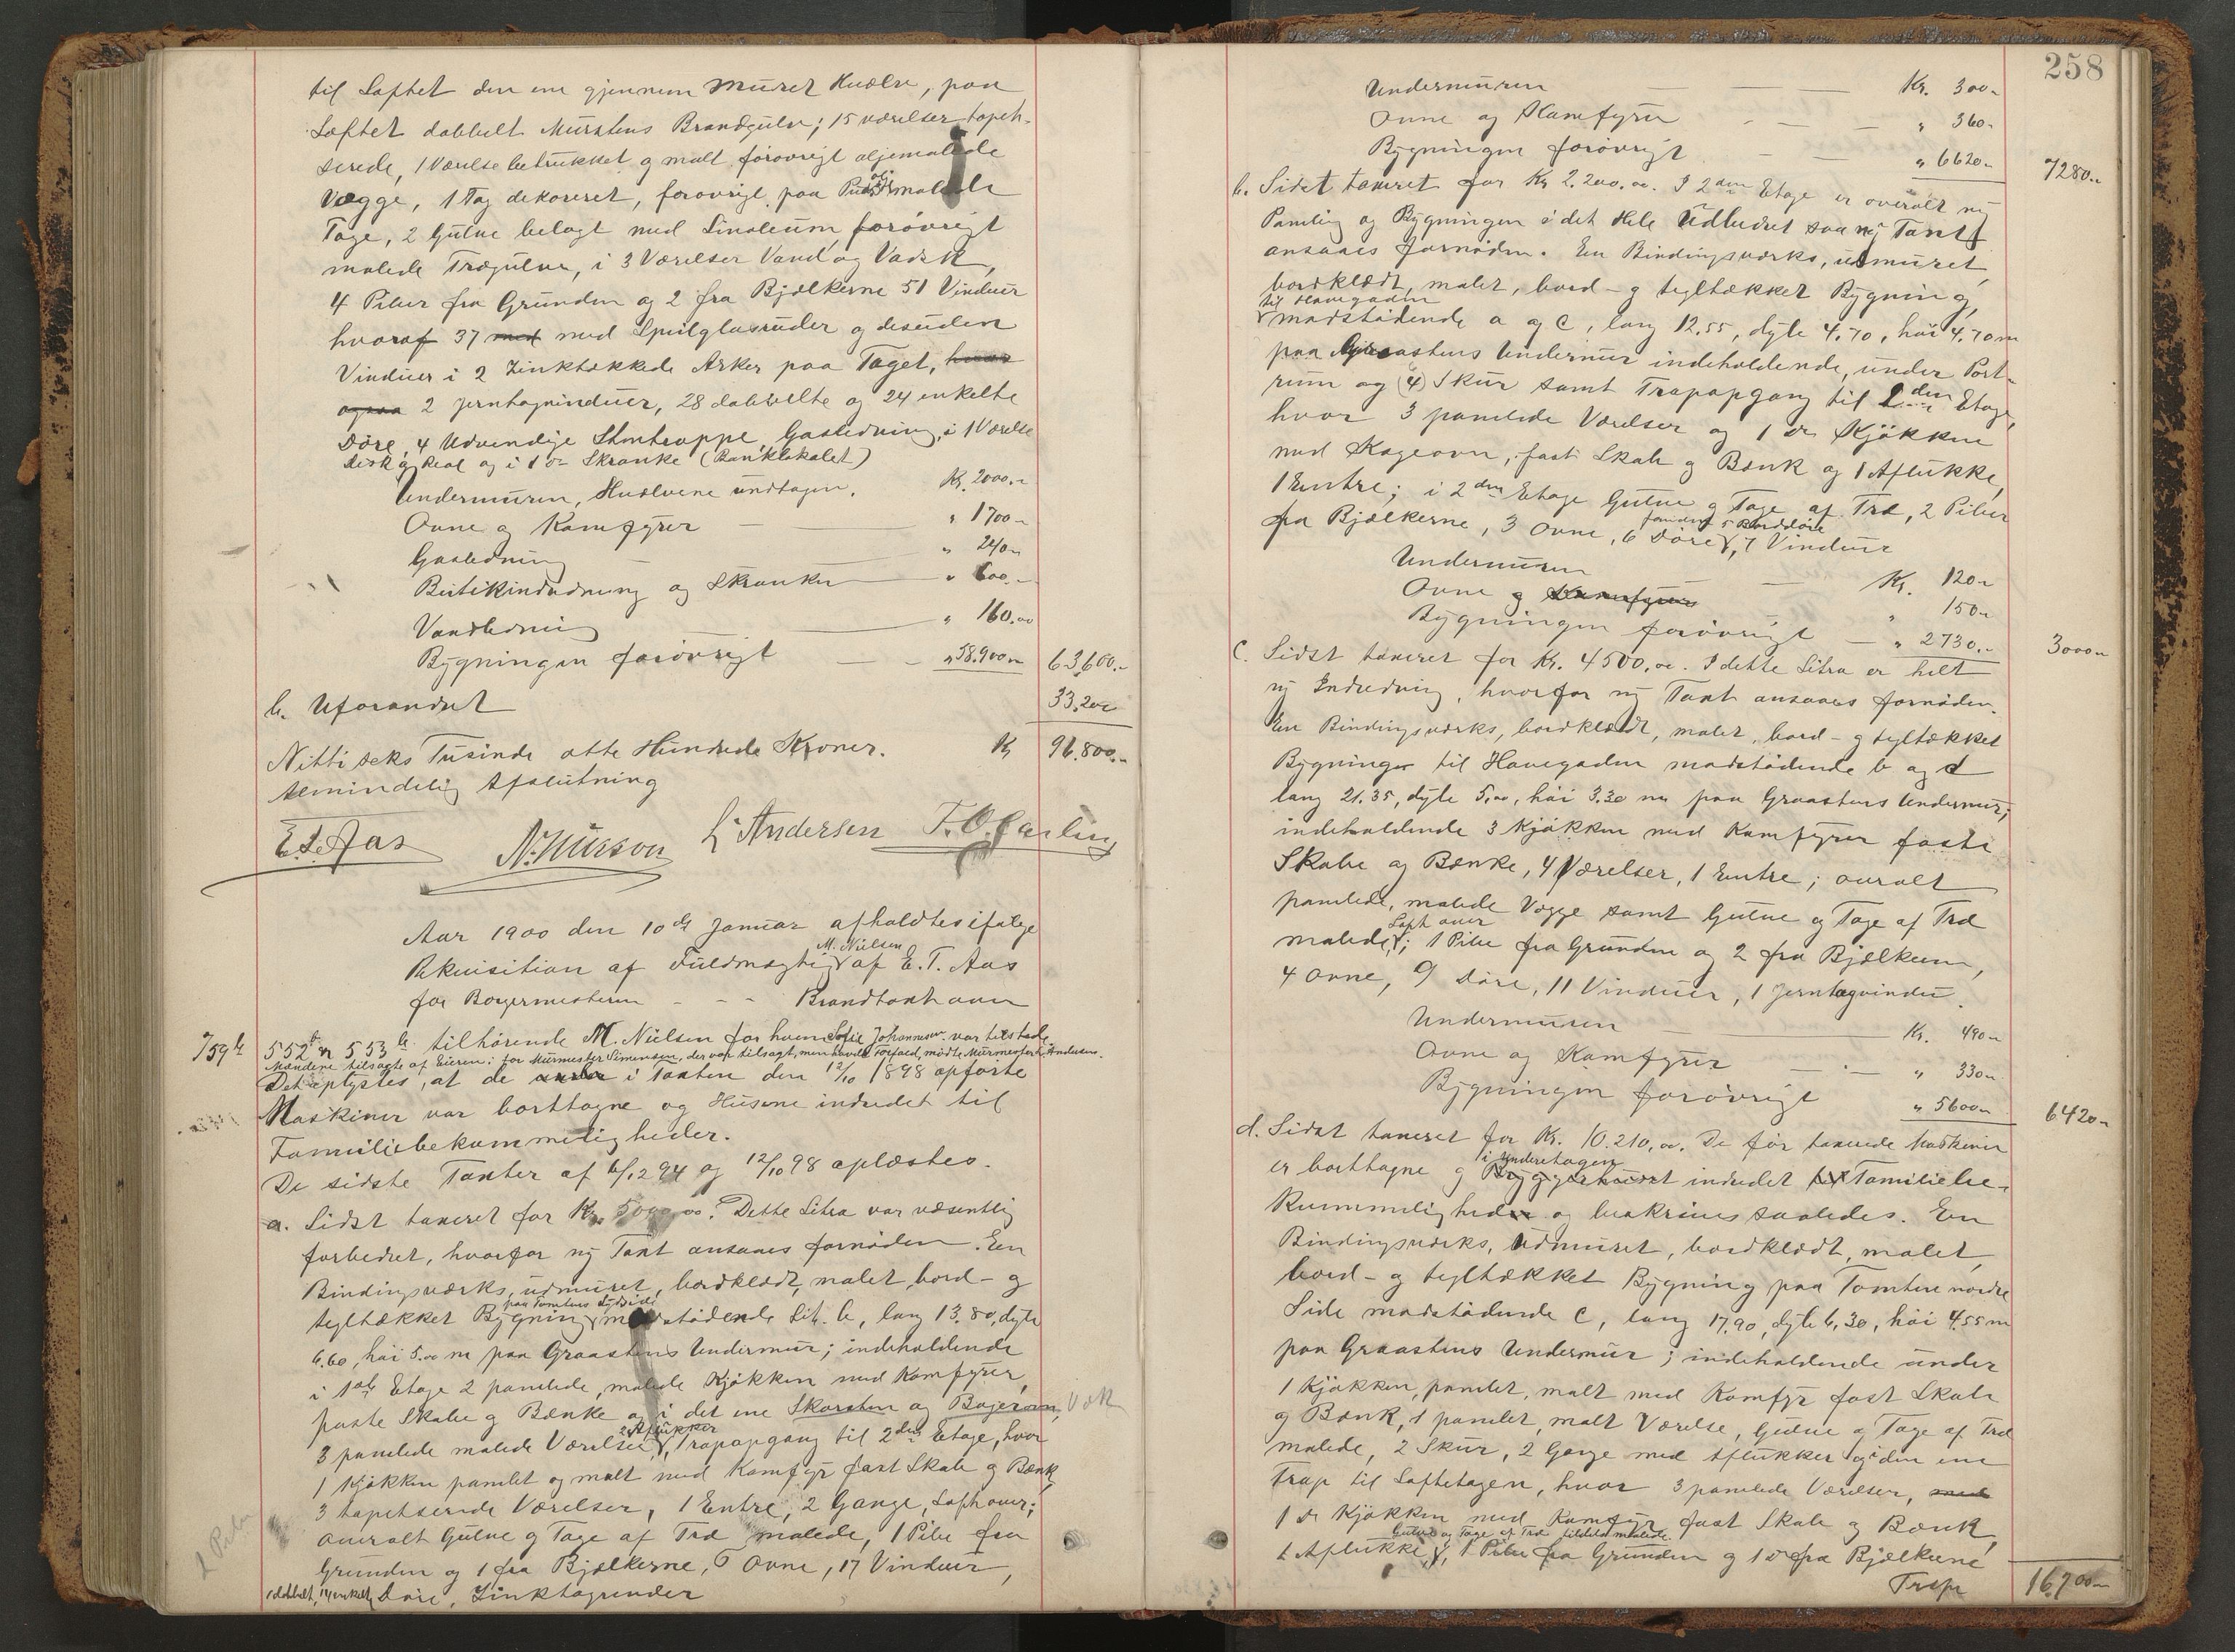 til Loftet den ene gjennem muret Hvælv, paa
Loftet dobbelt Murstens Brandgulv; 15 værelser tapet-
serede, 1 Værelse betrukket og malt forøvrigt oljemalede
Vægge, 1 Tag dekoreret, forøvrigt paa Puds oljemalede
Tage, 2 Gulve belagt med Linoleum, forøvrigt
malede Trægulve, i 3 Værelser Vand og Vadsk,
4 Piber fra Grunden og 2 fra Bjælkerne 51 Vinduer
hvoraf 37 med med Speilglasruder og desuden
Vinduer i 2 Zinktækkede Arker paa Taget, hvor
ogsaa 2 Jerntagvinduer, 28 dobbelte og 24 enkelte
Døre, 4 Udvendige Stentrappe, Gasledning, i 1 Værelse
Disk og Reol og i 1 do Skranke (Banklokalet)
Undermuren, Hvælvene undtagen, Kr. 2000.-
Ovne og Komfyrer — " 1700-
Gasledning — " 240-
Butikindredning og Skranker — " 600.-
Vandledning — " 160.00
Bygningen forøvrigt — " 58.900- 63.600.-
b. Uforandret 33.200
Nitti seks Tusinde otte Hundrede Kroner. Kr 96.800.-
Almindelig Afslutning
E.T. Aas N. Nilsson L. Andersen
Aar 1900 den 10de Januar afholdtes ifølge
Rekvisition af Fuldmægtig M. Nielsen af E. T. Aas
for Borgermesteren - - - Brandtaxt over
759b 552b og 553b tilhørende M. Nielsen for hvem Sofie Johannesen var tilstede
Mændene tilsagte af Eieren: for Murmester Simensen, der var tilsagt, men havde Forfald, mødte Murmester L. Andersen.
Det oplystes, at de under i Taxten den 12/10 1898 opførte
Maskiner var borttagne og Husene indredet til
Familiebekvemmeligheder.
De sidste Taxter af 6/12 94 og 12/10 98 oplæstes.
a. Sidst taxeret for Kr. 5000.00. Dette Litra var væsentlig
forbedret, hvorfor ny Taxt ansaaes fornøden. En
Bindingsværks, udmuret, bordklædt, malet, bord- og
tegltækket Bygning paa Tomtens Sydside modstødende Lit. b, lang 13.80, dyb
6.60, høi 5.00 m paa Graastens Undermur; indeholdende
i 1ste Etage 2 panelede, malede Kjøkken med Komfyrer,
faste Skabe og Bænke og i det ene Skorsten og Bagerovn, Væk
3 panelede malede Værelser, 2 Aflukker, Trapopgang til 2den Etage, hvor
1 Kjøkken panelet og malt med Komfyr fast Skab og Bænk,
3 tapetserede Værelser, 1 Entre, 2 Gange, Loft over;
overalt Gulve og Tage af Træ malede, 1 Pibe fra
Grunden og 1 fra Bjælkerne, 5 Ovne, 17 Vinduer,
1 dobbelt, 14 enkelt Døre, Zinktagrender
2 Piber
258
Undermuren — Kr. 300-
Ovne og Komfyrer — " 360-
Bygningen forøvrigt — " 6620- 7280.-
b. Sidst taxeret for Kr 2.200.00. I 2den Etage er overalt ny
Paneling og Bygningen i det Hele Udbedret saa ny Taxt
ansaaes fornøden. En Bindingsværks, udmuret,
bordklædt, malet, bord- og tegltækket Bygning,
til Havegaden
modstødende a og c, lang 12.55, dyb 4.70, høi 4.70 m
paa Graastens Undermur indeholdende, under Port-
rum og (4) Skur samt Trapopgang til 2den Etage,
hvor 3 panelede Værelser og 1 do Kjøkken
med Kogeovn, fast Skab og Bænk og 1 Aflukke,
1 Entre; i 2den Etage Gulve og Tage af Træ, 2 Piber
fra Bjælkerne, 3 Ovne, 6 Døre foruden 5 Borddøre, 7 Vinduer
Undermuren — Kr. 120-
Ovne og Komfyrer " 150-
Bygningen forøvrigt — " 2730.- 3000-
c. Sidst taxeret for Kr. 4500.00. I dette Litra er helt
ny Indredning, hvorfor ny Taxt ansaaes fornøden.
En Bindingsværks, bordklædt, malet, bord- og tegltækket
Bygning til Havegaden modstødende b og d
lang 21.35, dyb 5.00, høi 3.30 m paa Graastens Undermur;
indeholdende 3 Kjøkken med Komfyrer faste
Skabe og Bænke, 4 Værelser, 1 Entre; overalt
panelede, malede Vægge samt Gulve og Tage af Træ
malede, Loft over; 1 Pibe fra Grunden og 2 fra Bjælkerne,
4 Ovne, 9 Døre, 11 Vinduer, 1 Jerntagvindu.
Undermuren — Kr. 490-
Ovne og Komfyrer — " 330-
Bygningen forøvrigt " 5600- 6420-
d. Sidst taxeret for Kr. 10.210,00. De før taxerede Maskiner
er borttagne og i Underetagen Bryggerhuset indredet til Familiebe-
kvemmeligheder og beskrives saaledes. En
Bindingsværks, Udmuret, bordklædt, malet,
bord- og tegltækket Bygning paa Tomtens nordre
Side modstødende c, lang 17.90, dyb 6,30, høi 4.55 m
paa Graastens Undermur; indeholdende under
1 Kjøkken, panelet, malt med Komfyr fast Skab
og Bænk, 1 panelet, malt Værelse, Gulve og Tage af Træ
malede, 2 Skur, 2 Gange med Aflukker og i den ene
Trap til Loftetagen, hvor 3 panelede Værelser, med
1 do Kjøkken med Komfyr fast Skab og Bænk,
1 Aflukke, Gulve og Tage af Træ tildels malede, 1 Pibe fra Grunden og 1 do fra Bjælkerne
Trsp 16.700-